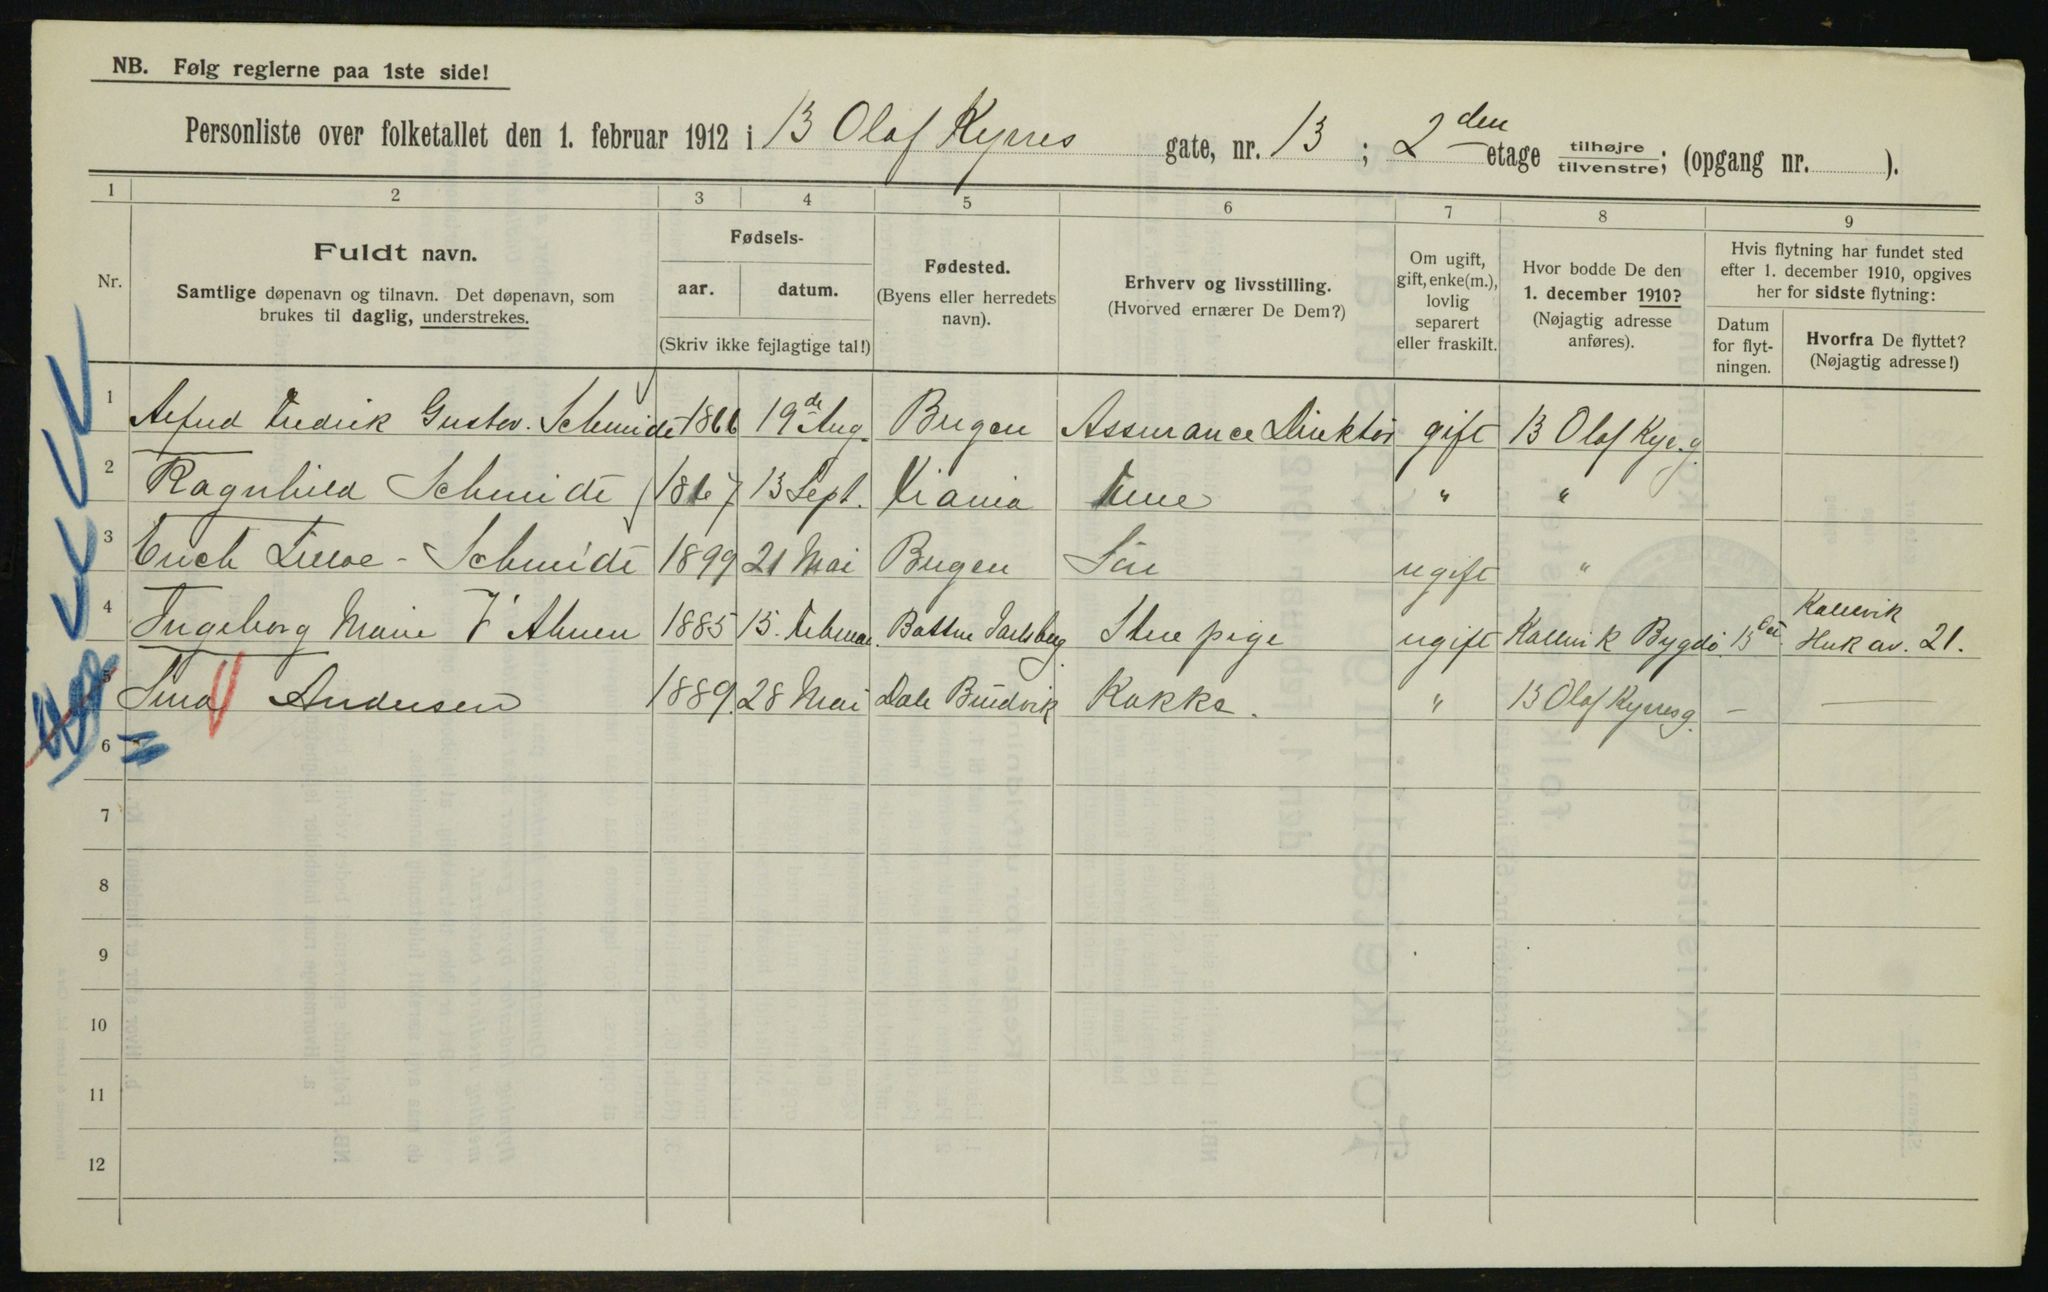 NB. Følg reglerne paa 1ste side!
Personliste over folketallet den 1. februar 1912 i 13 Olaf Kyrres gate, nr. 13 ; 2den etage tilhøjre/tilvenstre; (opgang nr. ).
1 2 3 4 5 6 7 8 9
Nr.
Fuldt navn.
Samtlige døpenavn og tilnavn. Det døpenavn, som
brukes til daglig, understrekes.
Fødsels-
aar. datum.
(Skriv ikke fejlagtige tal!)
Fødested.
(Byens eller herredets
navn).
Erhverv og livsstilling.
(Hvorved ernærer De Dem?)
Om ugift,
gift, enke(m.),
lovlig
separert
eller fraskilt.
Hvor bodde De den
1. december 1910?
(Nøjagtig adresse
anføres).
Hvis flytning har fundet sted
efter 1. december 1910, opgives
her for sidste flytning:
Datum
for flyt-
ningen.
Hvorfra De flyttet?
(Nøjagtig adresse!)
1 Alfred Fredrik Gustav. Schmidt 1866 19de Aug. Bergen Assurance Direktør gift 13 Olaf Kyr. g.
2 Ragnhild Schmidt 1867 13 Sept. Kiania " "
3 Erich Schmidt 1899 21 Mai Bergen Søn ugift "
4 Ingeborg Marie 1885 15. Februar. Stue pige ugift Bygdø 15 Oct. Huk av. 21.
5 Andersen 1889. 28 Mai Dale Kokke. " 13 Olaf Kyrresg. —
6
7
8
9
10
11
12